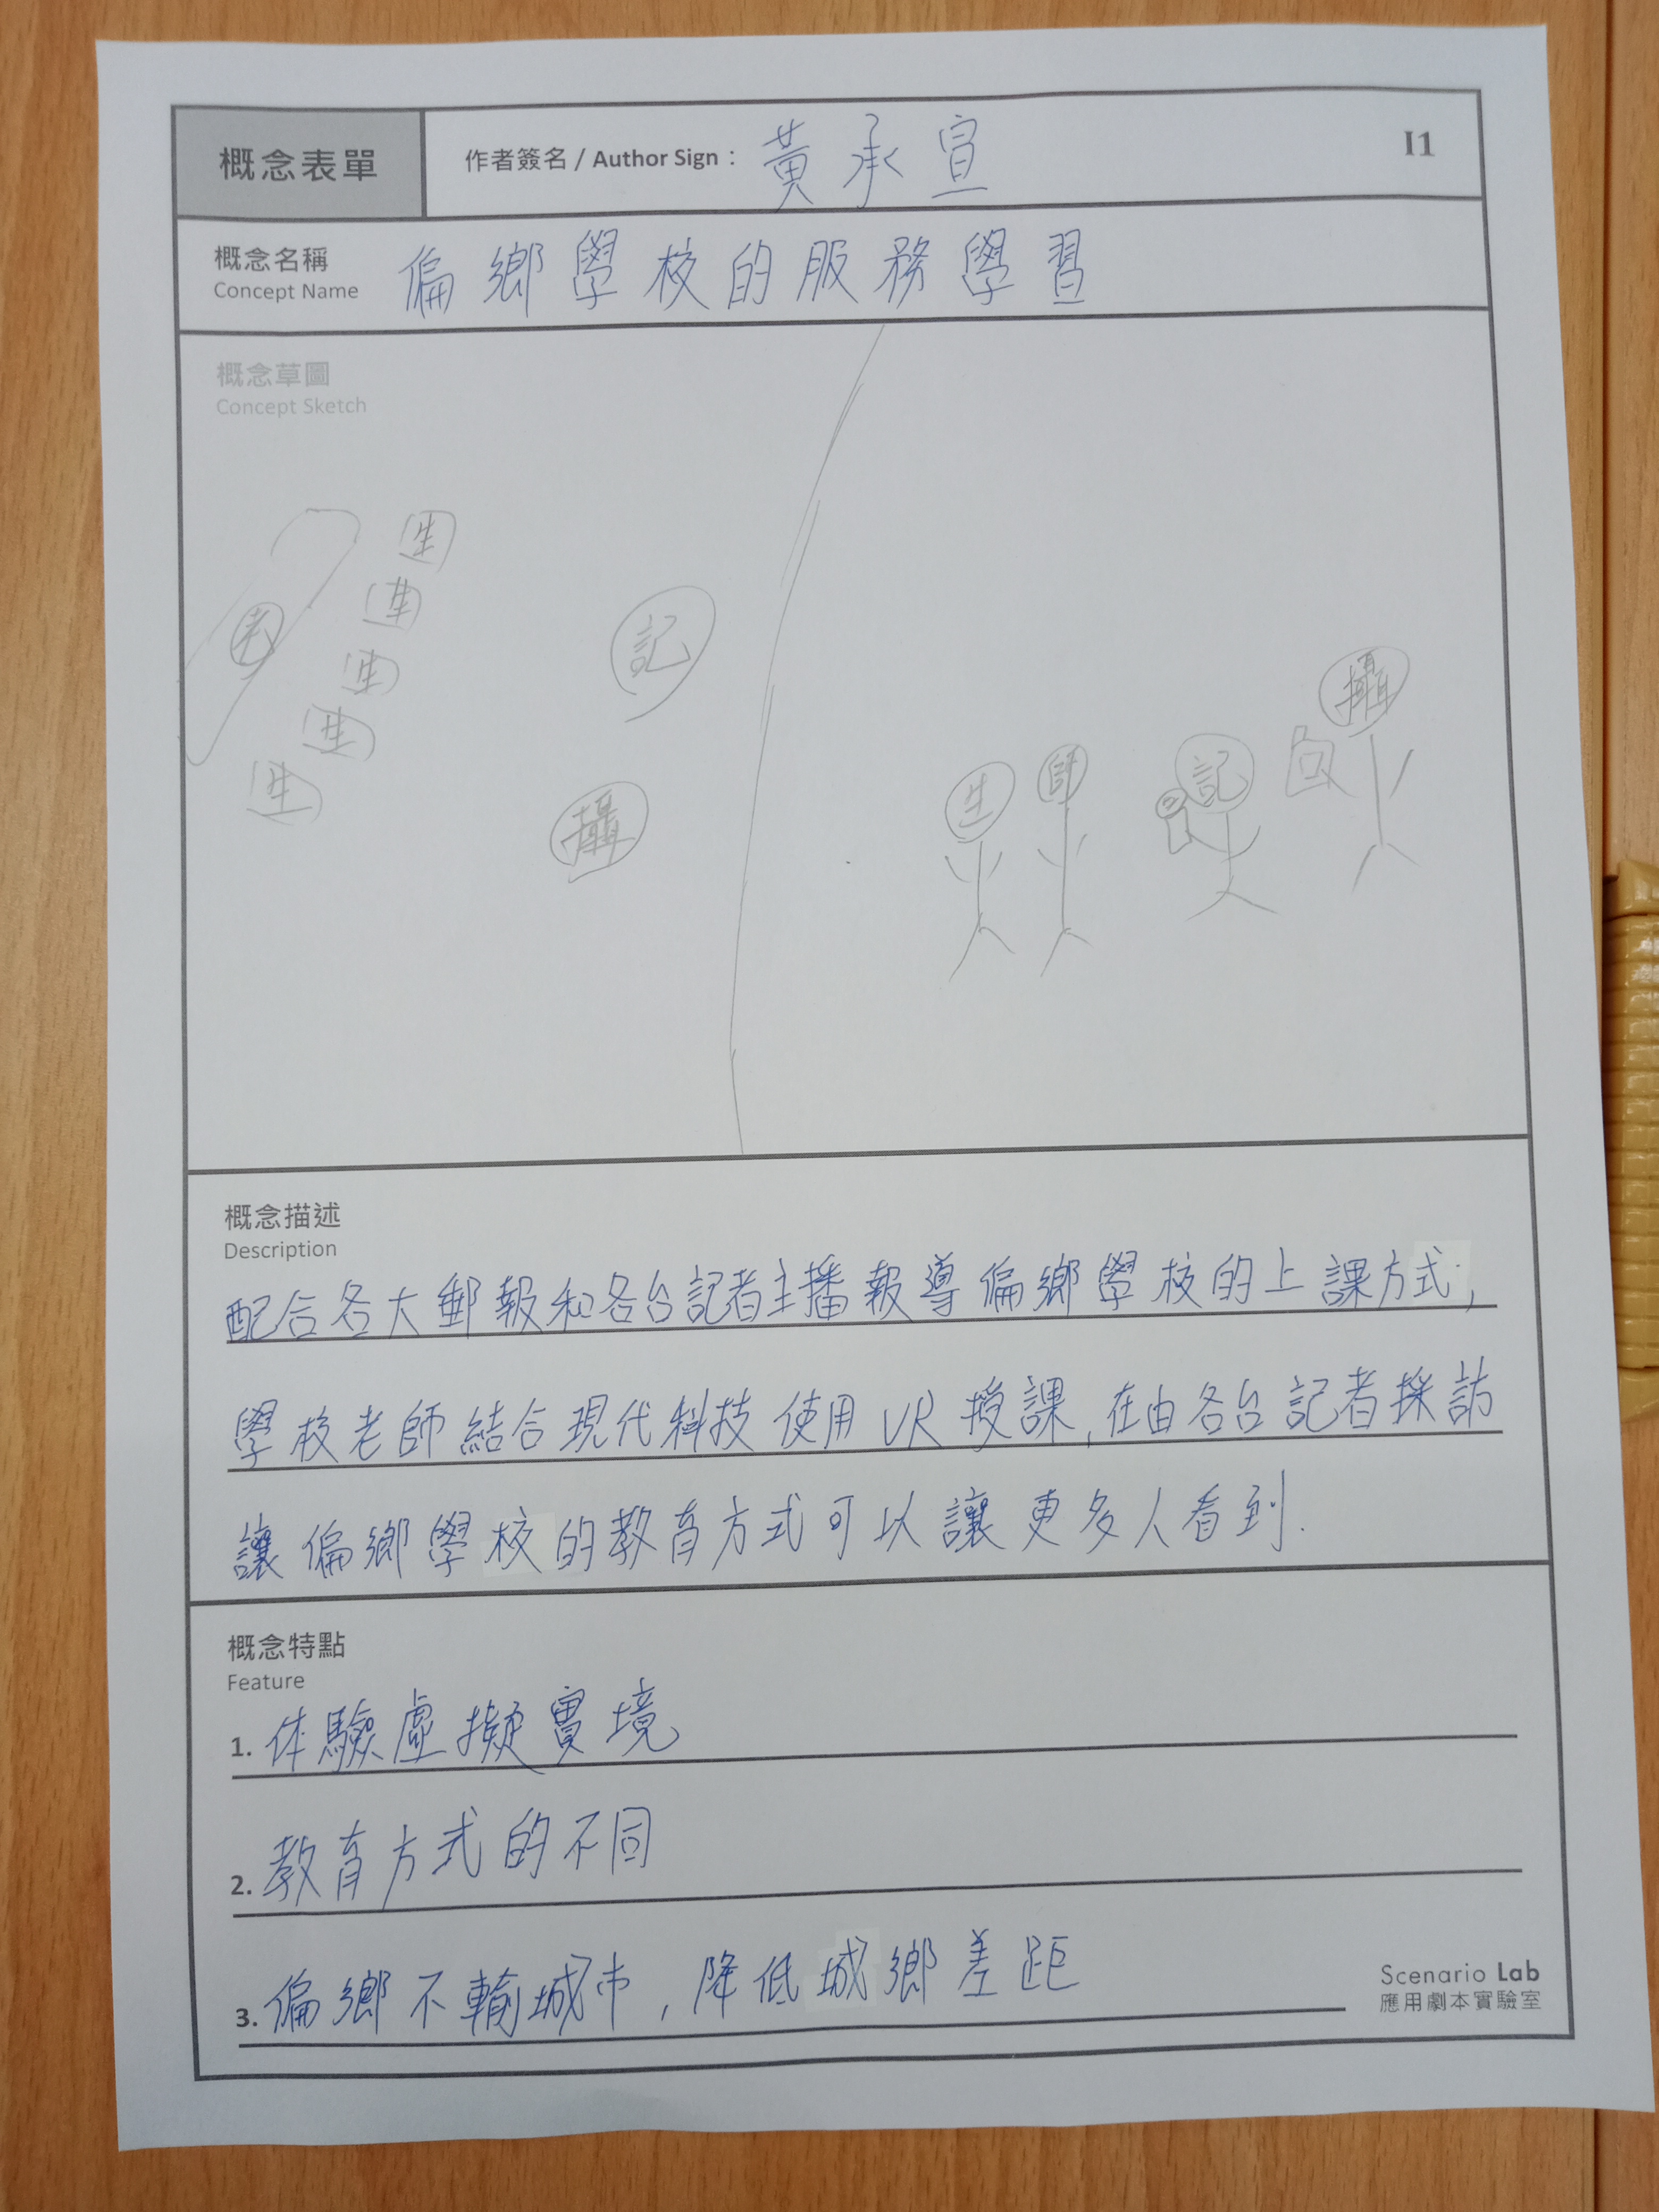 概念表單
作者簽名 / Author Sign：黃承宣
I1
概念名稱
Concept Name
偏鄉學校的服務學習
概念草圖
Concept Sketch
生
生
老
生
生
生
記
攝
生
師
記
攝
概念描述
Description
配合各大郵報和各台記者主播報導偏鄉學校的上課方式,
學校老師結合現代科技使用VR授課,在由各台記者採訪
讓偏鄉學校的教育方式可以讓更多人看到.
概念特點
Feature
1. 体驗虛擬實境
2. 教育方式的不同
3. 偏鄉不輸城市,降低城鄉差距
Scenario Lab
應用劇本實驗室